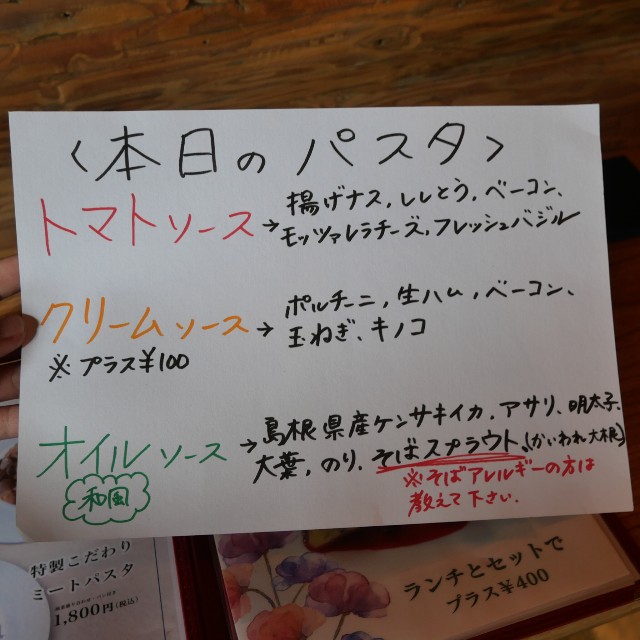 〈本日のパスタ〉
トマトソース→揚げナス,ししとう,ベーコン、
モッツァレラチーズ,フレッシュバジル
クリームソース→ポルチーニ,生ハム,ベーコン、
玉ねぎ、キノコ
※プラス¥100
オイルソース→島根県産ケンサキイカ,アサリ、明太子、
大葉,のり,そばスプラウト、(かいわれ大根)
和風
※そばアレルギーの方は
教えて下さい.
特製こだわり
ミートパスタ
1,800円(税込)
ランチとセットで
プラス¥400